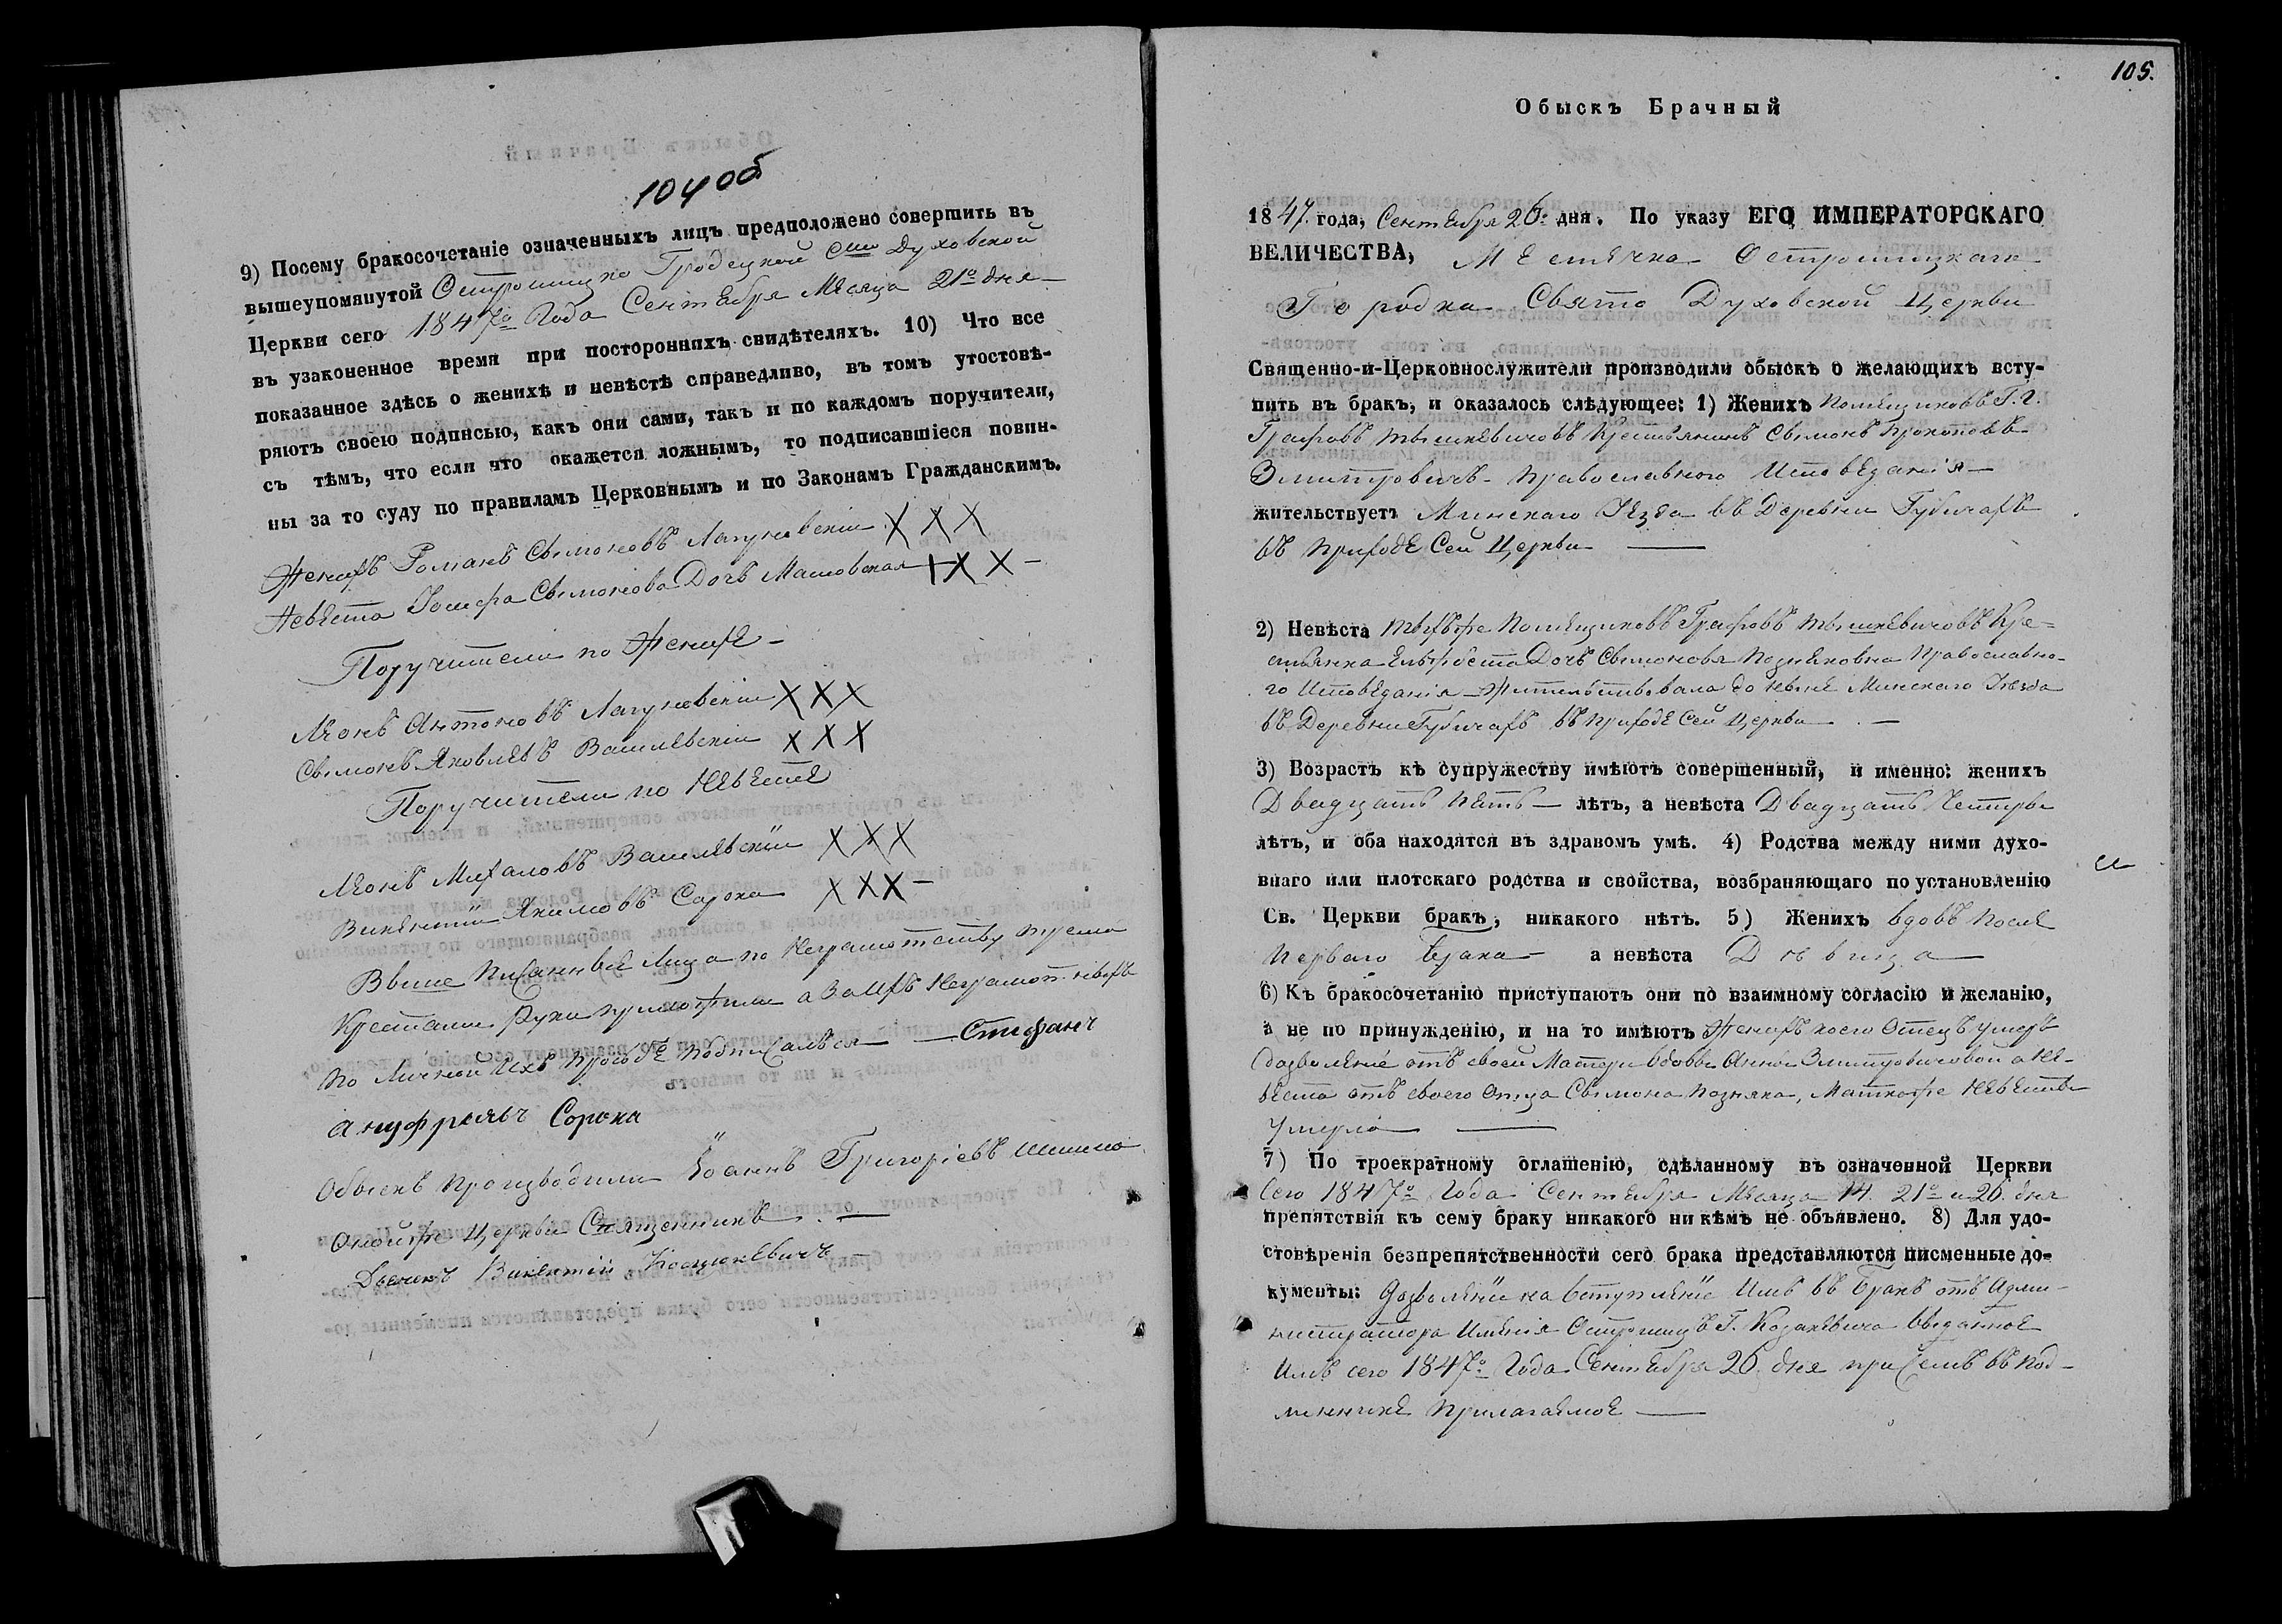 104 об
9) Посему бракосочетаніе означенныхъ лицъ предположено совершить въ
вышеупомянутой Острошицко Гродецкой Сто Духовской
Церкви сего 1847го Года Сентября Месяца 21го дня
въ узаконенное время при постороннихъ свидѣтеляхъ. 10) Что все
показанное здѣсь о женихѣ и невѣстѣ справедливо, въ томъ утостовѣ-
ряютъ своею подписью, какъ они сами, такъ и по каждомъ поручители,
съ тѣмъ, что если что окажется ложнымъ, то подписавшіеся повин-
ны за то суду по правиламъ Церковнымъ и по Законамъ Гражданскимъ.
Женихъ Романъ Сымоновъ XXX
Невеста Іозефа Сымонова Дочь XXX
Поручители по Женихе
Леонъ Антоновъ XXX
Сымонъ Яковлевъ Василевскіи XXX
Поручители по Невесте
Леонъ Михаловъ Василевскіи XXX
Викентіи Якимовъ Сорока XXX
Выше Писанные Лица по Неграмотству трема
Крестами Руки приложили а За ихъ Неграмотныхъ
по Личной Ихъ Прозбе подписался Стефанъ
Ануфрыевъ Сорока
Обыскъ Производили Іоаннъ Григоріевъ
Онойже Церкви Священникъ
Дьячокъ Викентій Косцюкевичъ
105.
Обыскъ Брачный
1847. года, Сентября 26го дня. По указу ЕГО ИМПЕРАТОРСКАГО
ВЕЛИЧЕСТВА, Местечка Острошицкаго
Городка Свято Духовской Церкви
Священно-и-Церковнослужители производили обыскъ о желающихъ всту-
пить въ бракъ, и оказалось слѣдующее: 1) Женихъ Помещиковъ Г. Г.
Графовъ Тышкевичовъ Крестьянинъ Сымонъ Прокоповъ
Змитровичъ Православного Исповеданія
жительствуетъ Минскаго Уезда въ Деревни Губичахъ
въ Приходе Сей Церкви
2) Невѣста Техъже Помещиковъ Графовъ Тышкевичовъ Кре-
стьянка Дочь Сымонова Позняковна Православно-
го Исповеданія Жительствовала до ныне Минскаго Уезда
въ Деревни Губичахъ въ Приходе Сей Церкви
3) Возрастъ къ супружеству имѣютъ совершенный, и именно: женихъ
Двадцать Пять лѣтъ, а невѣста Двадцать Четыры
лѣтъ, и оба находятся въ здравомъ умѣ. 4) Родства между ними духо-
внаго или плотскаго родства и свойства, возбраняющаго по установленію
Св. Церкви бракъ, никакого нѣтъ. 5) Женихъ вдовъ после
Перваго Брака а невѣста Девица
6) Къ бракосочетанію приступаютъ они по взаимному согласію и желанію,
а не по принужденію, и на то имѣютъ Женихъ коего Отецъ умеръ
дозволеніе отъ своей Матери вдовы Анны Змитровичовой а Не-
веста отъ своего отца Сымона Позняка, Матка же Невесты
умерла
7) По троекратному оглашенію, сдѣланному въ означенной Церкви
Сего 1847го Года Сентября Месяца 14. 21го и 26. дня
препятствія къ сему браку никакого никѣмъ не объявлено. 8) Для удо-
стовѣренія безпрепятственности сего брака представляются писменные до-
кументы: Дозволеніе на вступленіе Имъ въ Бракъ отъ Адми-
нистратора Именія Острошицъ Г. Козакевича выданное
Имъ сего 1847го Года Сентября 26. дня при семъ въ Под-
линнике Прилагаемое